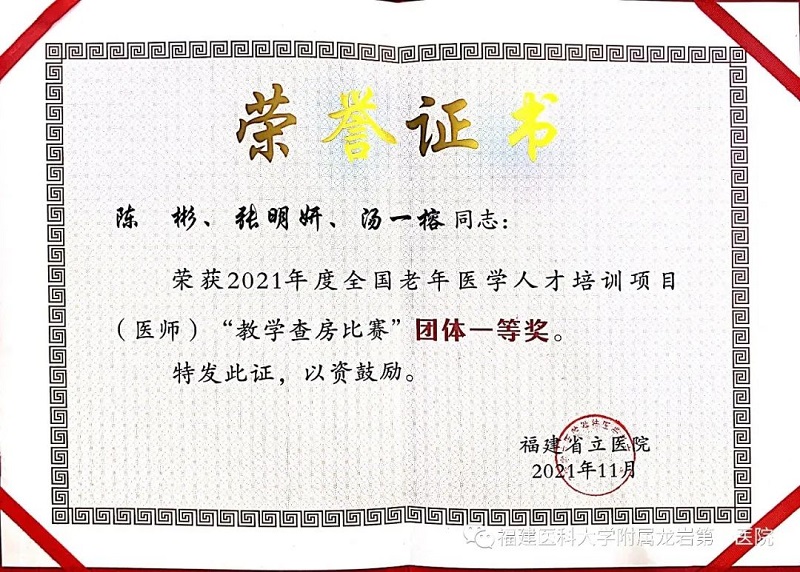 荣誉证书
陈 彬、张明妍、汤一榕同志：
荣获2021年度全国老年医学人才培训项目
（医师）“教学查房比赛”团体一等奖。
特发此证，以资鼓励。
福建省立医院
2021年11月
福建医科大学附属龙岩第一医院